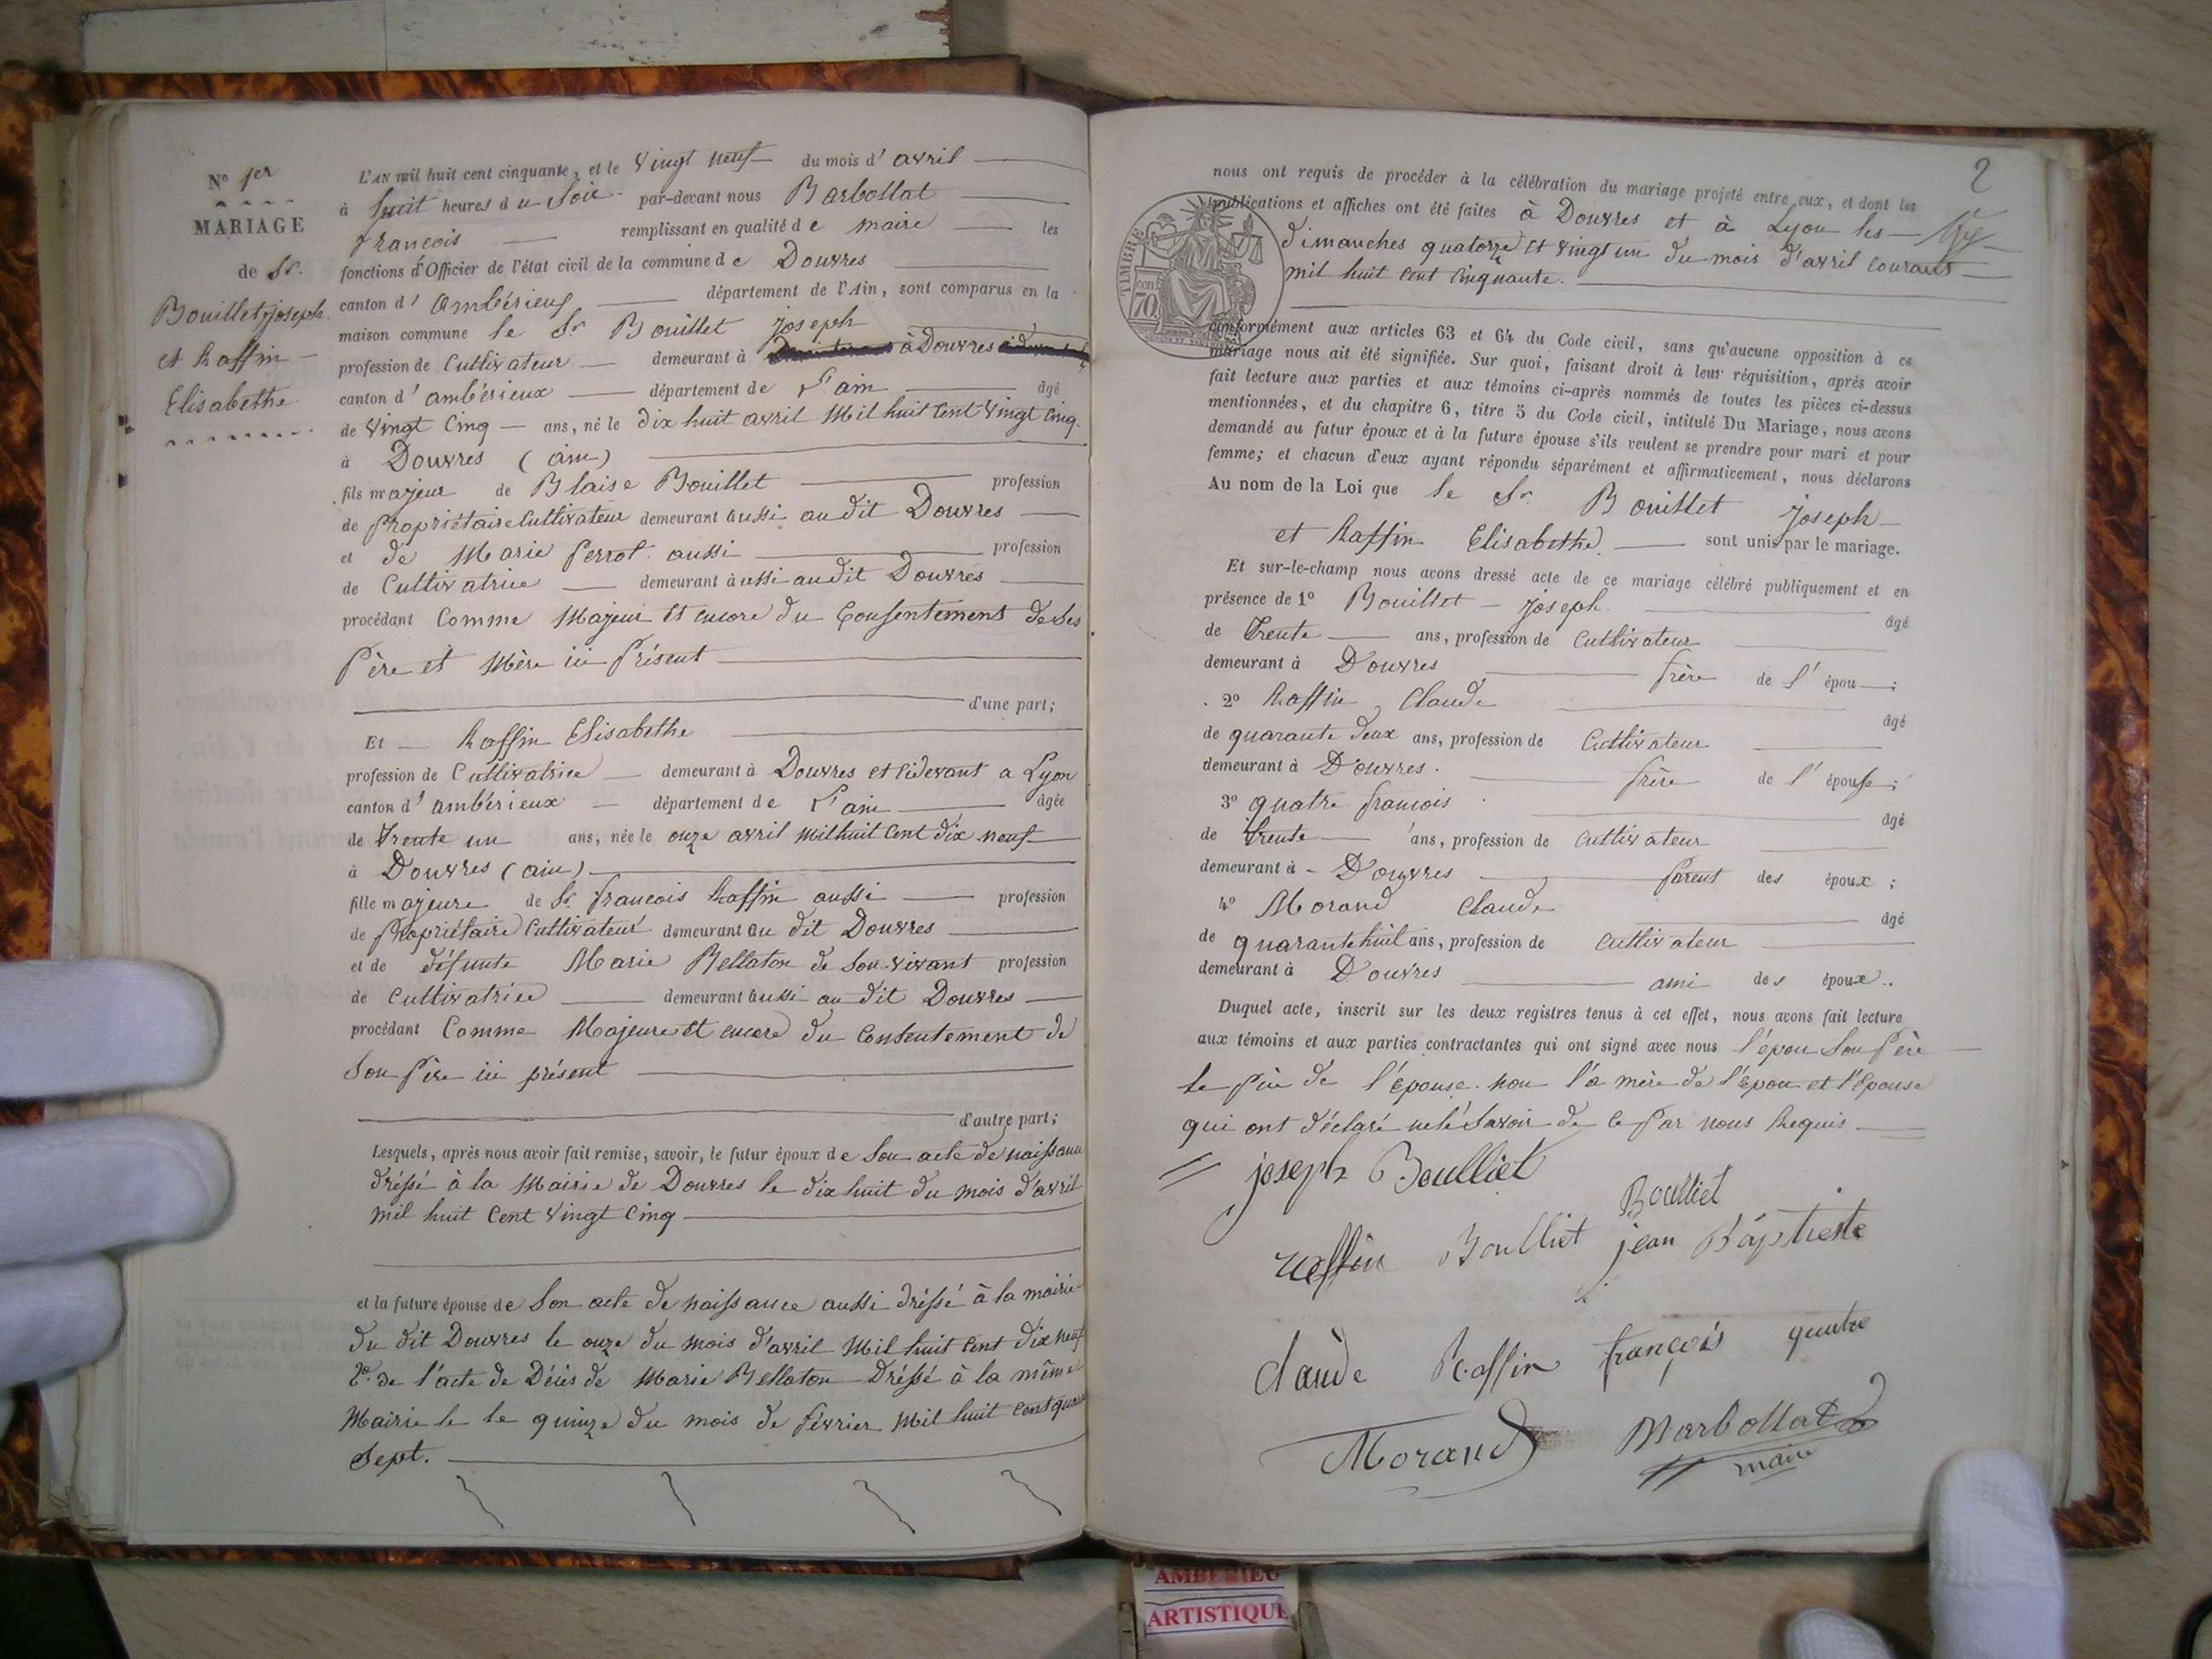 N° 1er
MARIAGE
de Sr.
Bouillet joseph
et Raffin
Elisabethe
L'AN mil huit cent cinquante, et le Vingt neuf du mois d'avril
à huit heures du Soir par-devant nous Barbollat
francois remplissant en qualité de maire les
fonctions d'Officier de l'état civil de la commune de Douvres
canton d'Ambérieux département de l'Ain, sont comparus en la
maison commune le Sr Bouillet joseph
profession de Cultivateur demeurant à à Douvres
canton d'ambérieux département de L'ain âgé
de Vingt Cinq ans, né le dix huit avril Mil huit Cent Vingt Cinq
à Douvres (ain)
fils majeur de Blaise Bouillet profession
de Propriétaire Cultivateur demeurant aussi au dit Douvres
et de Marie Perrot aussi profession
de Cultivatrice demeurant aussi au dit Douvres
procédant Comme Majeur Et encore du Consentement de Ses
Père et Mère ici Présent
d'une part;
Et Raffin Elisabethe
profession de Cultivatrice demeurant à Douvres et cidevant a Lyon
canton d'ambérieux département de L'ain âgée
de trente un ans, née le onze avril Mil huit Cent dix neuf
à Douvres (ain)
fille majeure de Sr. francois Raffin aussi profession
de Propriétaire Cultivateur demeurant au dit Douvres
et de défunte Marie Bellaton de Son vivant profession
de Cultivatrice demeurant aussi au dit Douvres
procédant Comme Majeure et encore du Consentement de
Son Père ici présent
d'autre part;
Lesquels, après nous avoir fait remise, savoir, le futur époux de Son acte de naissance
dréssé à la Mairie de Douvres le dix huit du mois d'avril
Mil huit Cent Vingt Cinq
et la future épouse de Son acte de naissance aussi dréssé à la mairie
du dit Douvres le onze du mois d'avril Mil huit Cent dix neuf
2°. de l'acte de Décès de Marie Bellaton Dréssé à la même
Mairie le le quinze du mois de février Mil huit Cent
Sept.
2
nous ont requis de procéder à la célébration du mariage projeté entre eux, et dont les
publications et affiches ont été faites à Douvres et à Lyon les
dimanches quatorze et vingt un du mois d'avril courant
mil huit cent cinquante.
TIMBRE
70
conformément aux articles 63 et 64 du Code civil, sans qu'aucune opposition à ce
mariage nous ait été signifiée. Sur quoi, faisant droit à leur réquisition, après avoir
fait lecture aux parties et aux témoins ci-après nommés de toutes les pièces ci-dessus
mentionnées, et du chapitre 6, titre 5 du Code civil, intitulé Du Mariage, nous avons
demandé au futur époux et à la future épouse s'ils veulent se prendre pour mari et pour
femme; et chacun d'eux ayant répondu séparément et affirmativement, nous déclarons
Au nom de la Loi que le Sr. Bouillet joseph
et Raffin Elisabethe sont unis par le mariage.
Et sur-le-champ nous avons dressé acte de ce mariage célébré publiquement et en
présence de 1° Bouillet joseph âgé
de trente ans, profession de Cultivateur
demeurant à Douvres frère de l'épou ;
2° Raffin Claude âgé
de quarante deux ans, profession de Cultivateur
demeurant à Douvres frère de l'épouse;
3° quatre francois âgé
de trente ans, profession de Cultivateur
demeurant à Douvres Parent des époux;
4° Morand Claude âgé
de quarante huit ans, profession de Cultivateur
demeurant à Douvres ami des époux.
Duquel acte, inscrit sur les deux registres tenus à cet effet, nous avons fait lecture
aux témoins et aux parties contractantes qui ont signé avec nous l'épou Son Père
le Père de l'épouse. non l'a mère de l'épou et l'épouse
qui ont déclaré ne le Savoir de ce Par nous Requis
joseph Boulliet
Boulliet
raffin Boulliet jean Baptieste
Claude Raffin françois quatre
Morand Barbollat
maire
AMBERIEU
ARTISTIQUE